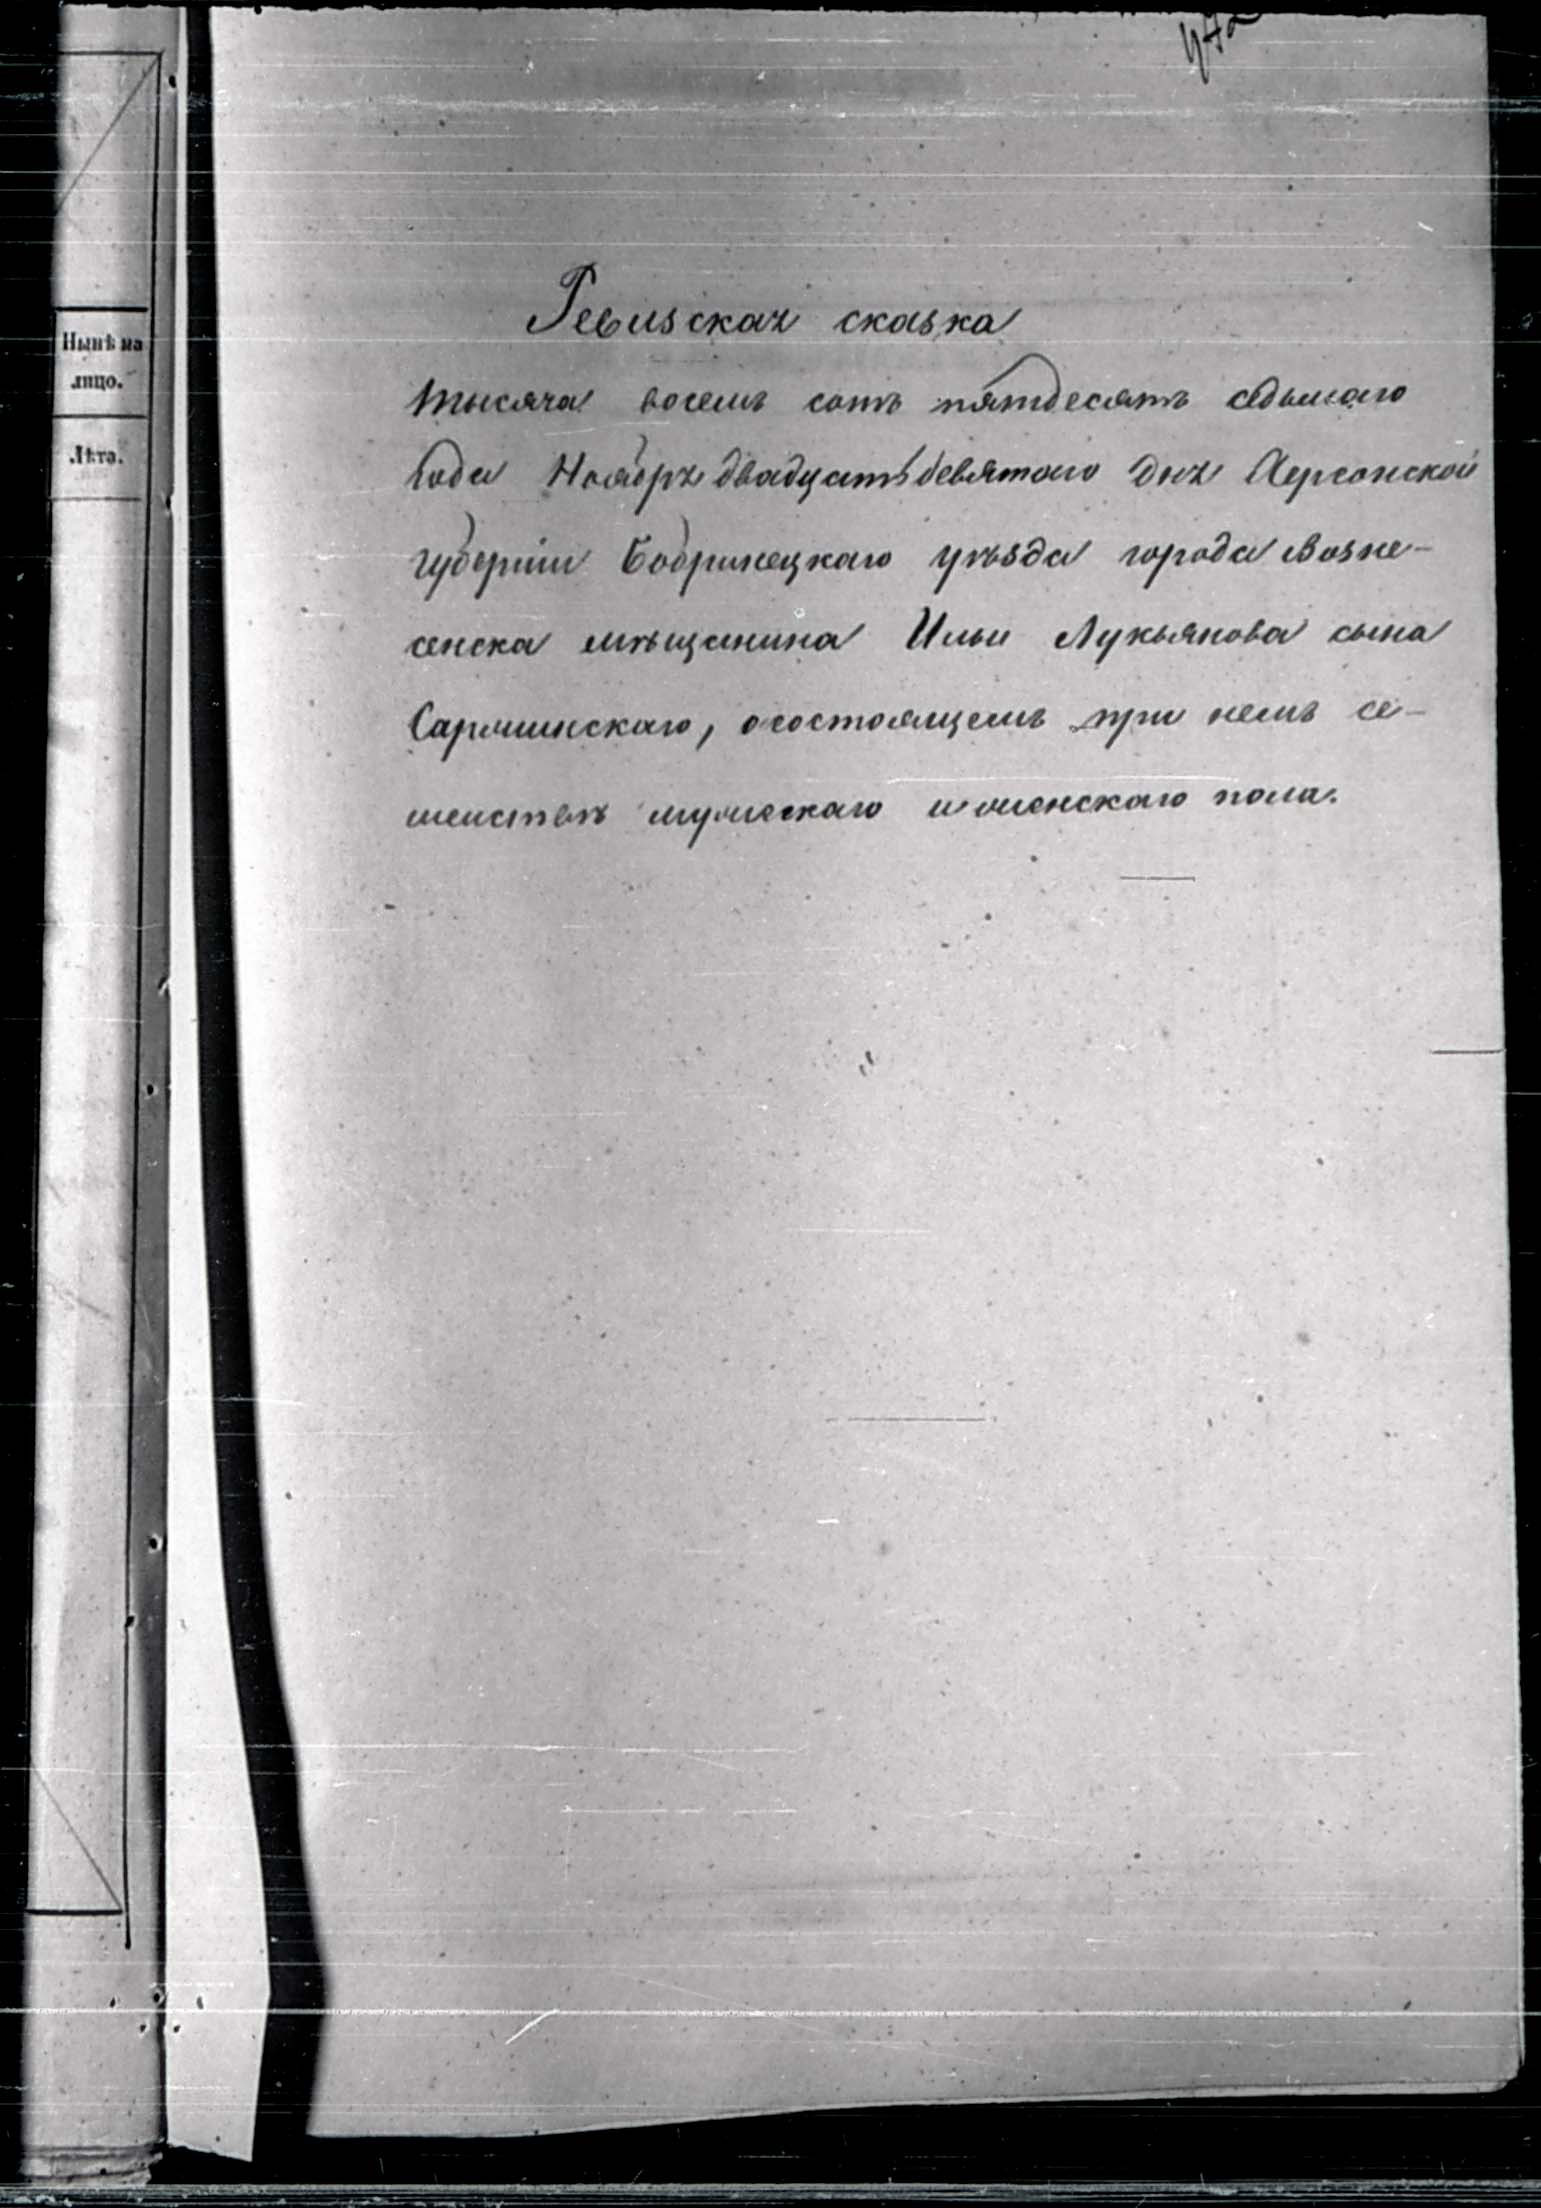 Нынѣ на
лицо.
Лѣта.
Ревизская сказка
тысяча восемъ сотъ пятдесятъ седьмаго
года Ноября двадцать девятаго дня Херсонской
губерніи Бобринецкаго уѣзда города Возне-
сенска мѣщанина Ильи Лукьянова сына
Саржинскаго, о состоящемъ при немъ се-
мействѣ мужескаго и женскаго пола.